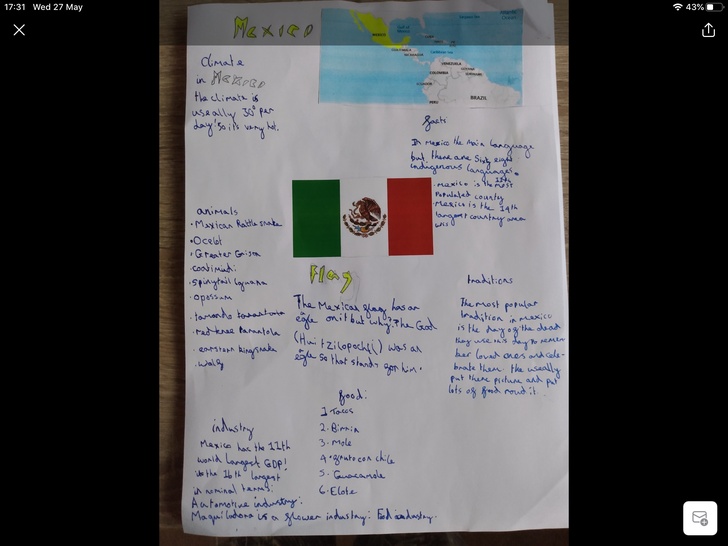 17:31 Wed 27 May
43%
Mexico
MEXICO
VENEZUELA
COLOMBIA
PERU
BRAZIL
Climate
in Mexico
the climate is
useally 30° per
day so its very hot.
facts
In mexico the main language
but there are sixty eight
indigenous languages.
• mexico is the 11th most
populated country
• Mexico is the 14th
largest country area
wis
animals
• Mexican Rattle snake
• Ocelot
• Greater Grison
coatimudi
• spinytail iguana
• opossum
tamandu
• red knee
• earstern kingsnake
• wolf
Flag
The Mexican flag has an
eagle on it but why? The God
(Huitzilopochji) was an
eagle so that stands for him.
traditions
The most popular
tradition in mexico
is the day of the dead
they use this day to remem
ber loved ones and cele-
brate them. the usually
put there picture and put
lots of food roud it
food:
1. Tacos
2. Birria
3. Mole
4. con chile
5. Guacamole
6. Elote
industry
Mexico has the 11th
world largest GDP!
its the 16th largest
in nominal terms:
Automotive industry:
Maquiladora is a flower industry: Food industry.